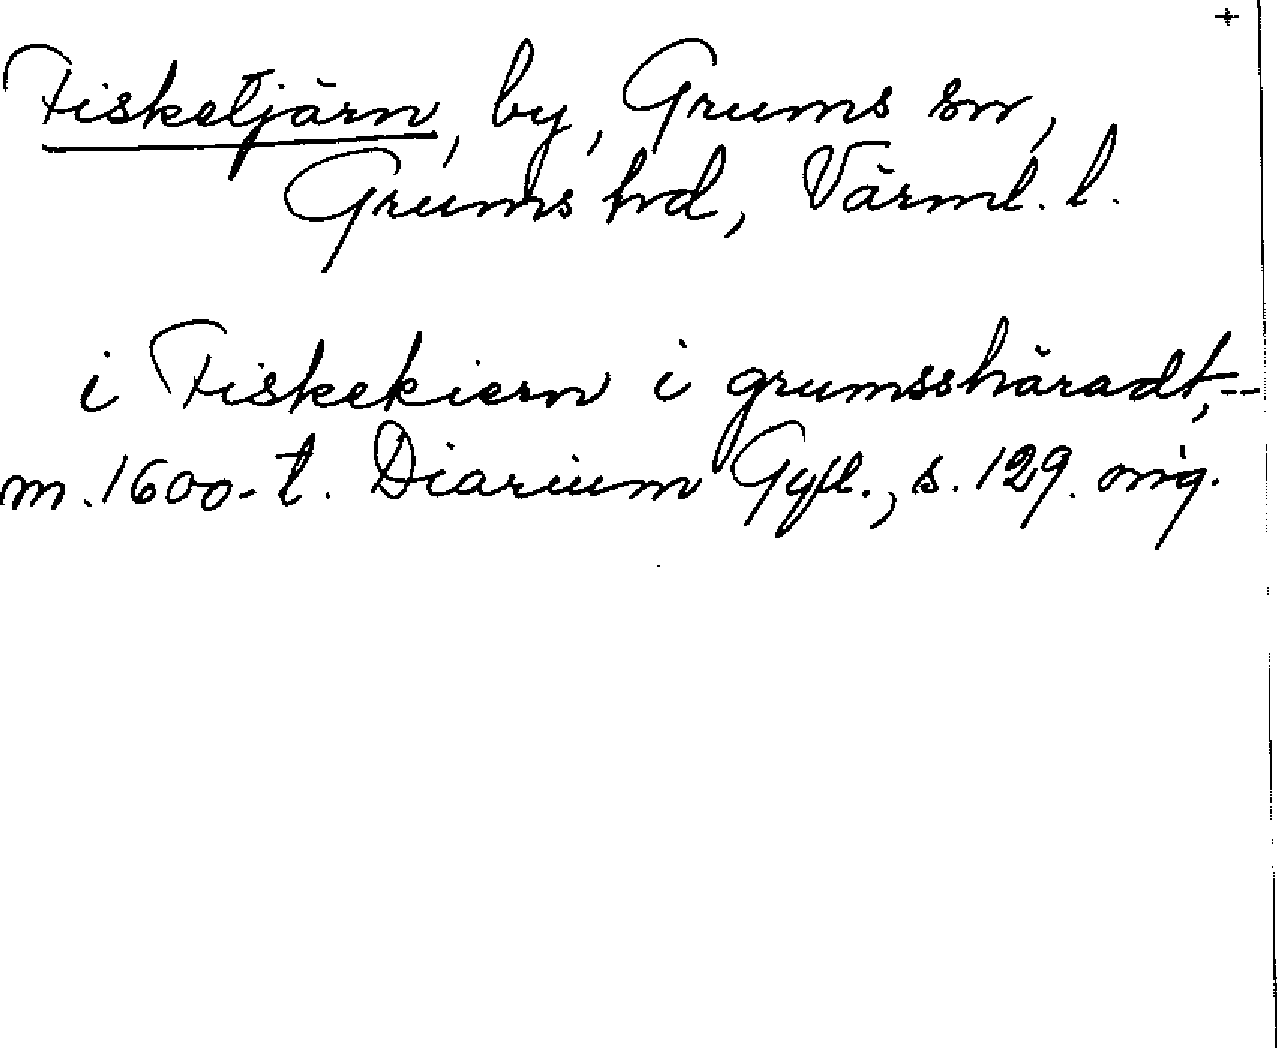 +
Fisketjärn, by, Grums sn,
Grums hd, Värml. l.
i Fiskekiern i grumsshäradt,--
m. 1600-t. Diarium Gyll., s. 129. orig.